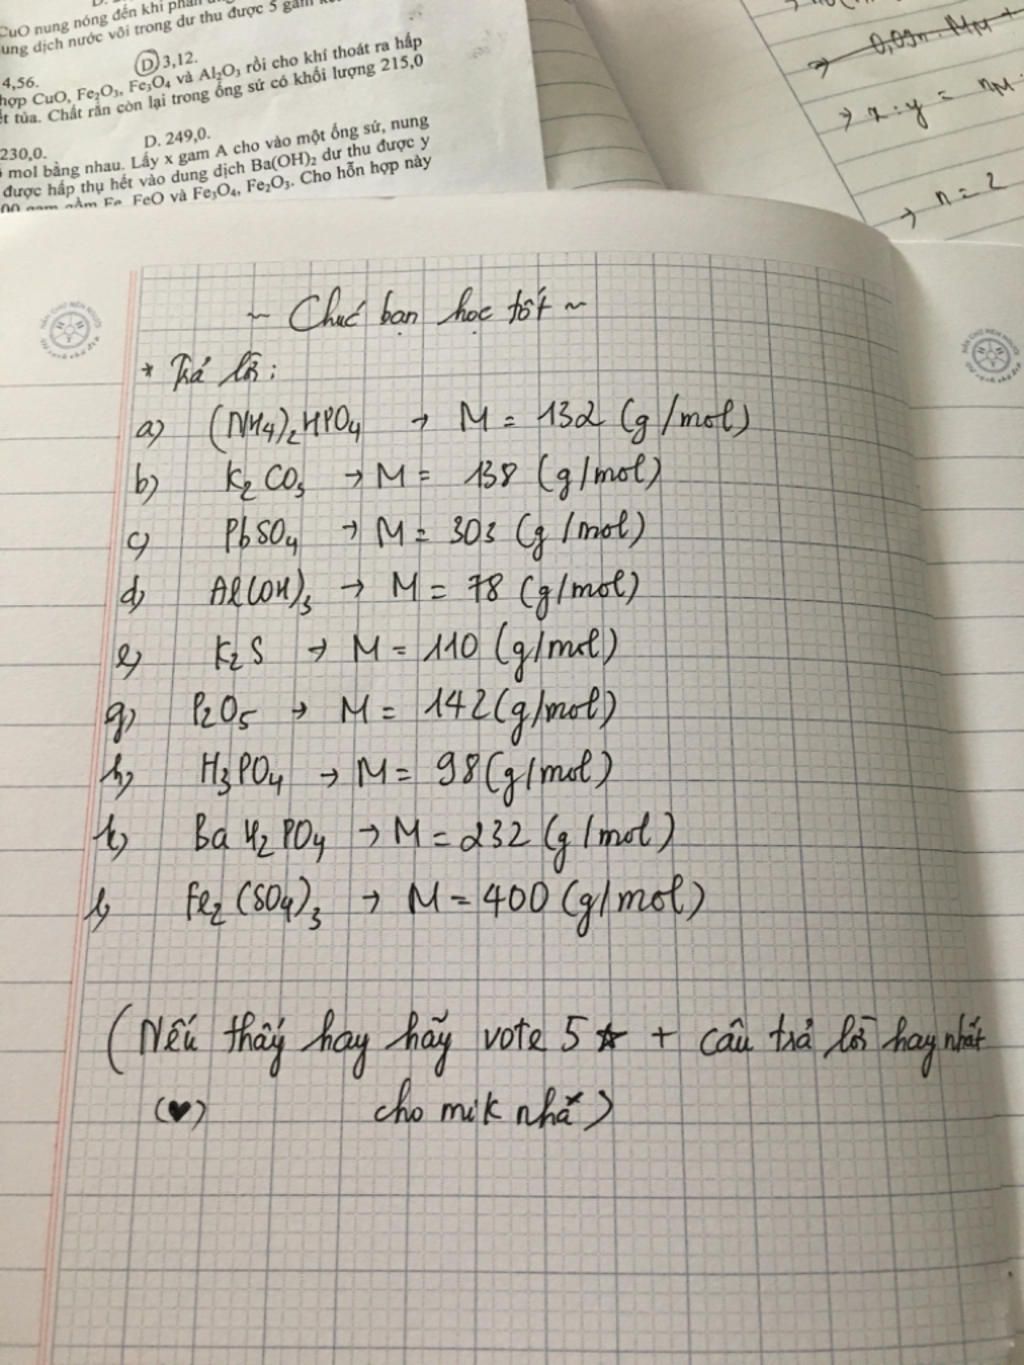 CuO nung nóng đến khi phản
ung dịch nước vôi trong dư thu được 5 gam
4,56.
D. 3,12.
hợp CuO, Fe2O3, Fe3O4 và Al2O3 rồi cho khí thoát ra hấp
ết tủa. Chất rắn còn lại trong ống sứ có khối lượng 215,0
230,0.
D. 249,0.
mol bằng nhau. Lấy x gam A cho vào một ống sứ, nung
được hấp thụ hết vào dung dịch Ba(OH)2 dư thu được y
gồm Fe, FeO và Fe3O4, Fe2O3. Cho hỗn hợp này
→ 0,09n. MM +
→ x:y = nM
→ n = 2
~ Chúc bạn học tốt ~
* Trả lời:
a) (NH4)2HPO4 → M = 132 (g/mol)
b) K2CO3 → M = 138 (g/mol)
c) PbSO4 → M = 303 (g/mol)
d) Al(OH)3 → M = 78 (g/mol)
e) K2S → M = 110 (g/mol)
g) P2O5 → M = 142 (g/mol)
h) H3PO4 → M = 98 (g/mol)
k) BaH2PO4 → M = 232 (g/mol)
l) Fe2(SO4)3 → M = 400 (g/mol)
(Nếu thấy hay hãy vote 5 ☆ + câu trả lời hay nhất
(♥) cho mik nhá)